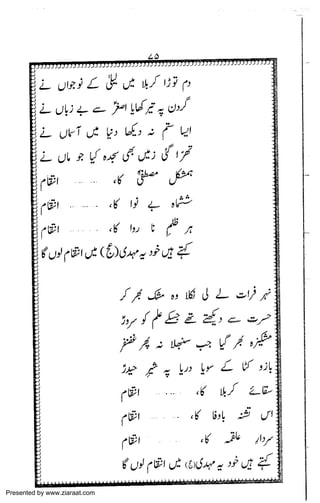 ۷۵
دم توڑا کربلا میں لیلیٰؑ کے نوجواں نے
گردن پہ تیر کھایا اصغرؑ سے بے زباں نے
ایسا ستم نہ دیکھا دنیا میں آسماں نے
تھرا گئی زمیں بھی سجدہ کیا جو ماں نے
ہمشکل مصطفیٰؐ کا، ........ انتقام
ششماہ بے نوا کا، ........ انتقام
ہر ظلم نا روا کا، ........ انتقام
کہتے ہیں خود یہ مہدیؑ (عج) میں انتقام لوں گا
نہر فرات لے لی نکلا وہ مشک بھر کر
حسرت سے دیکھتے تھے جسکے علم کو سرورؑ
مشکیزہ بھر گیا جب سنبھلا نہ پھر غضنفر
بازو کٹا کے سویا دریا پہ شیر حیدرؑ
سقائے کربلا کا، ........ انتقام
اس تشنہ باوفا کا، ........ انتقام
سردار علقمہ کا، ........ انتقام
کہتے ہیں خود یہ مہدیؑ (عج) میں انتقام لوں گا
Presented by www.ziaraat.com